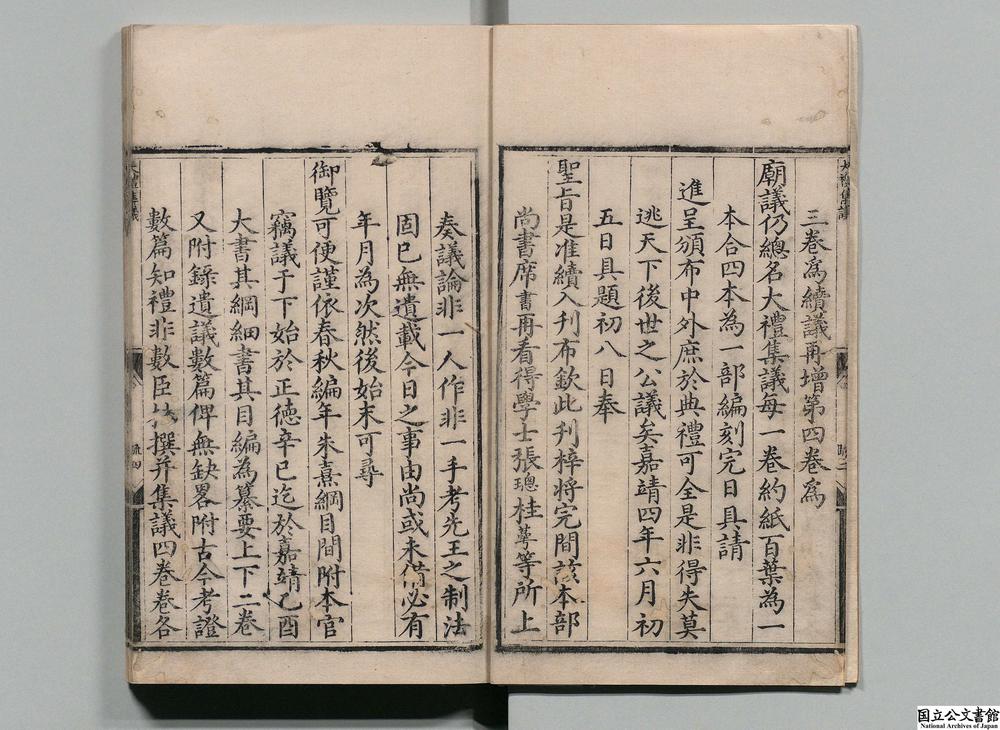 三卷爲續議再增第四卷爲
廟議仍總名大禮集議每一卷約紙百葉為一
本合四本為一部編刻完日具請
進呈頒布中外庶於典禮可全是非得失莫
逃天下後世之公議矣嘉靖四年六月初
五日具題初八日奉
聖旨是准續入刋布欽此刋梓将完間該本部
尚書席書再看得學士張璁桂萼等所上
奏議論非一人作非一手考先王之制法
固已無遺載今日之事由尚或未備必有
年月為次然後始末可尋
御覽可便謹依春秋編年朱熹綱目間附本官
竊議于下始於正德辛巳迄於嘉靖乙酉
大書其綱細書其目編為纂要上下二卷
又附錄遺議數篇俾無缺畧附古今考證
數篇知禮非數臣杜撰并集議四卷卷各
大禮集議
大禮集議
疏四
国立公文書館
National Archives of Japan